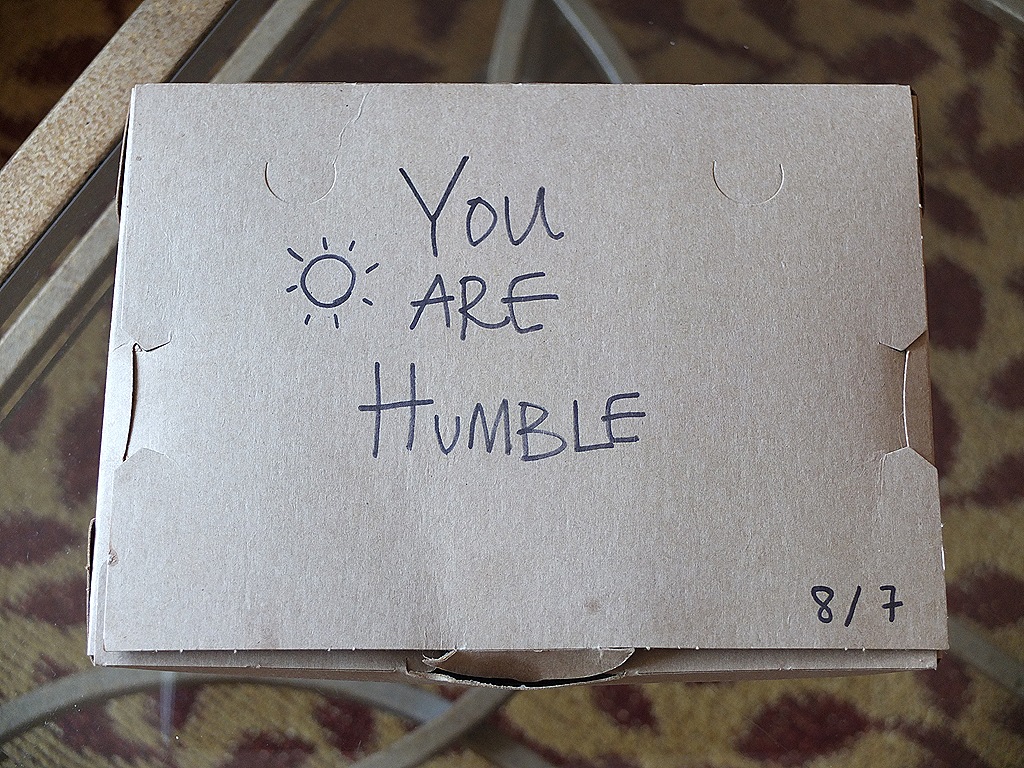 You
ARE
HUMBLE
8/7